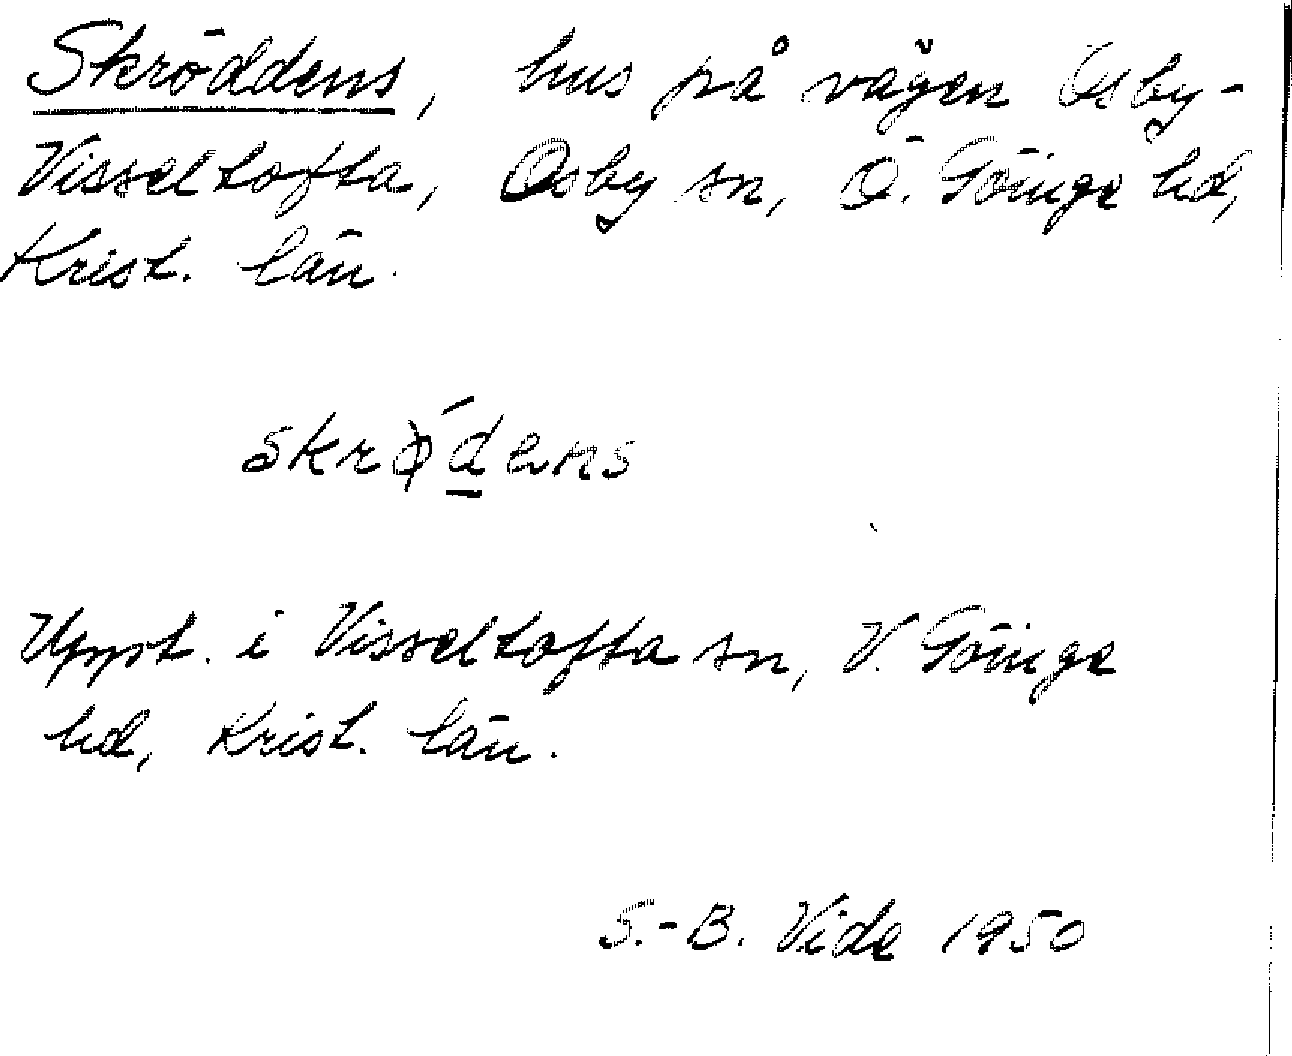 Skröddens, hus på vägen Osby-
Visseltofta, Osby sn, Ö. Göinge hd,
Krist. län.
skrǿdens
Uppt. i Visseltofta sn, V. Göinge
hd, Krist. län.
S.-B. Vide 1950